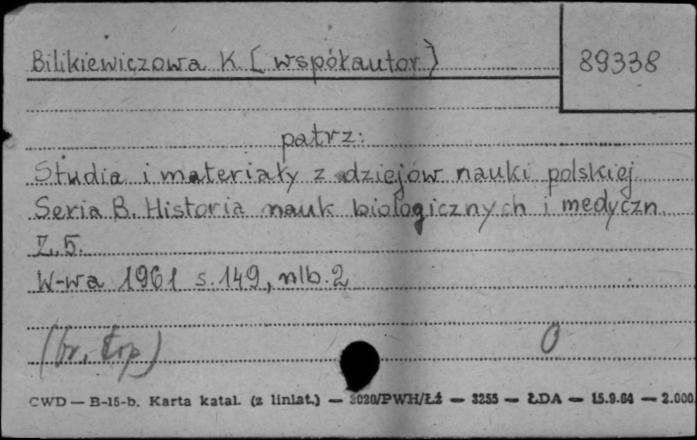 Bilikiewiczowa K [współautor)
89338
patrz:
Studia i materiały z dziejów nauki polskiej
Seria B. Historia nauk biologicznych i medyczn.
Z. 5.
W-wa 1961 s. 149, nlb. 2
(br,
0
CWD — B-15-b. Karta katal. (z liniat.) — 3020/PWH/Łź — 3255 — ŁDA — 15.9.64 — 2.000.